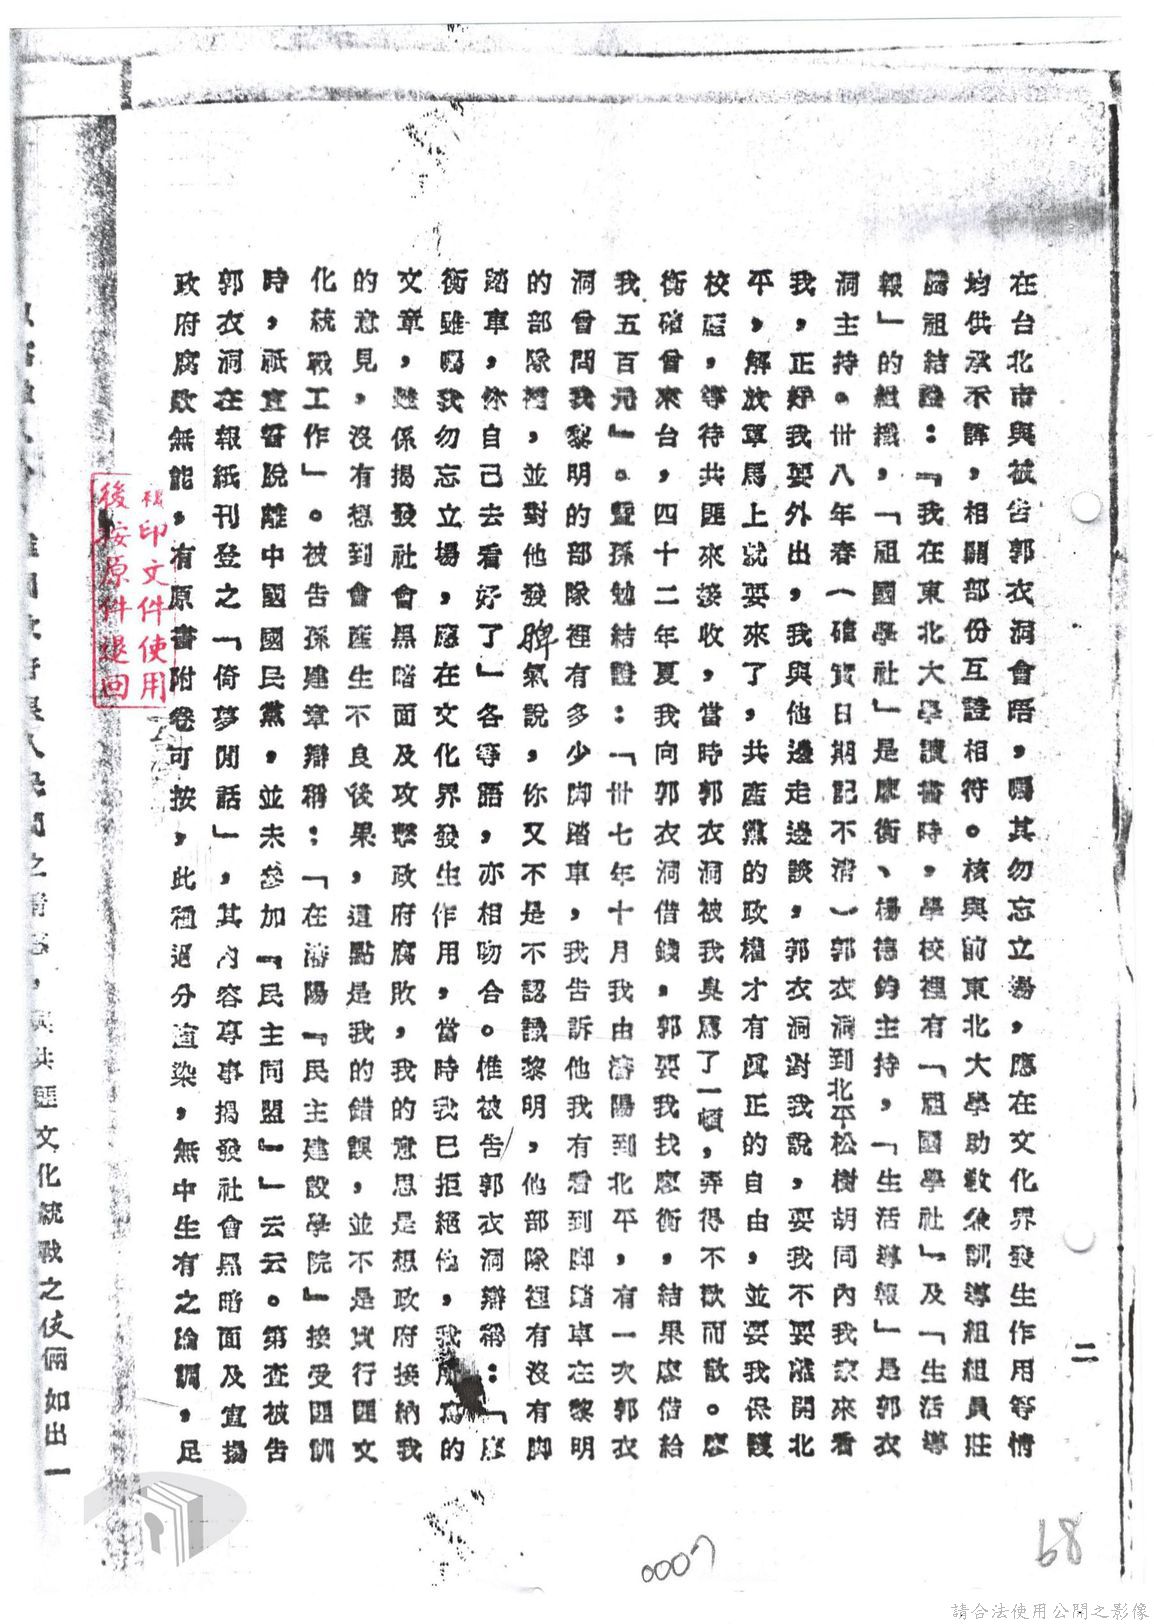 二
在台北市與被告郭衣洞會晤，囑其勿忘立場，應在文化界發生作用等情
均供承不諱，相關部份互證相符。核與前東北大學助教兼訓導組組員莊
歸祖結證：「我在東北大學讀書時，學校裡有「祖國學社」及「生活導
報」的組織，「祖國學社」是廖衡、楊德鈞主持，「生活導報」是郭衣
洞主持。卅八年春（確實日期記不清）郭衣洞到北平松樹胡同內我家來看
我，正好我要外出，我與他邊走邊談，郭衣洞對我說，要我不要離開北
平，解放軍馬上就要來了，共產黨的政權才有眞正的自由，並要我保護
校產，等待共匪來接收，當時郭衣洞被我臭罵了一頓，弄得不歡而散。廖
衡確曾來台，四十二年夏我向郭衣洞借錢，郭要我找廖衡，結果廖借給
我五百元」。暨孫勉結證：「卅七年十月我由瀋陽到北平，有一次郭衣
洞曾問我黎明的部隊裡有多少脚踏車，我告訴他我有看到脚踏車在黎明
的部隊裡，並對他發脾氣說，你又不是不認識黎明，他部隊裡有沒有脚
踏車，你自己去看好了」各等語，亦相吻合。惟被告郭衣洞辯稱：「廖
衡雖囑我勿忘立場，應在文化界發生作用，當時我已拒絕他，我所寫的
文章，雖係揭發社會黑暗面及攻擊政府腐敗，我的意思是想政府接納我
的意見，沒有想到會產生不良後果，這點是我的錯誤，並不是實行匪文
化統戰工作」。被告孫建章辯稱：「在瀋陽「民主建設學院」接受匪訓
時，祇宣誓脫離中國國民黨，並未參加「民主同盟」」云云。第查被告
郭衣洞在報紙刊登之「倚夢閒話」，其內容專事揭發社會黑暗面及宣揚
政府腐敗無能，有原書附卷可按，此種過分渲染，無中生有之論調，足
之情感，與共匪文化統戰之伎倆如出一
印文件使用
後按原件退回
0007
68
請合法使用公開之影像